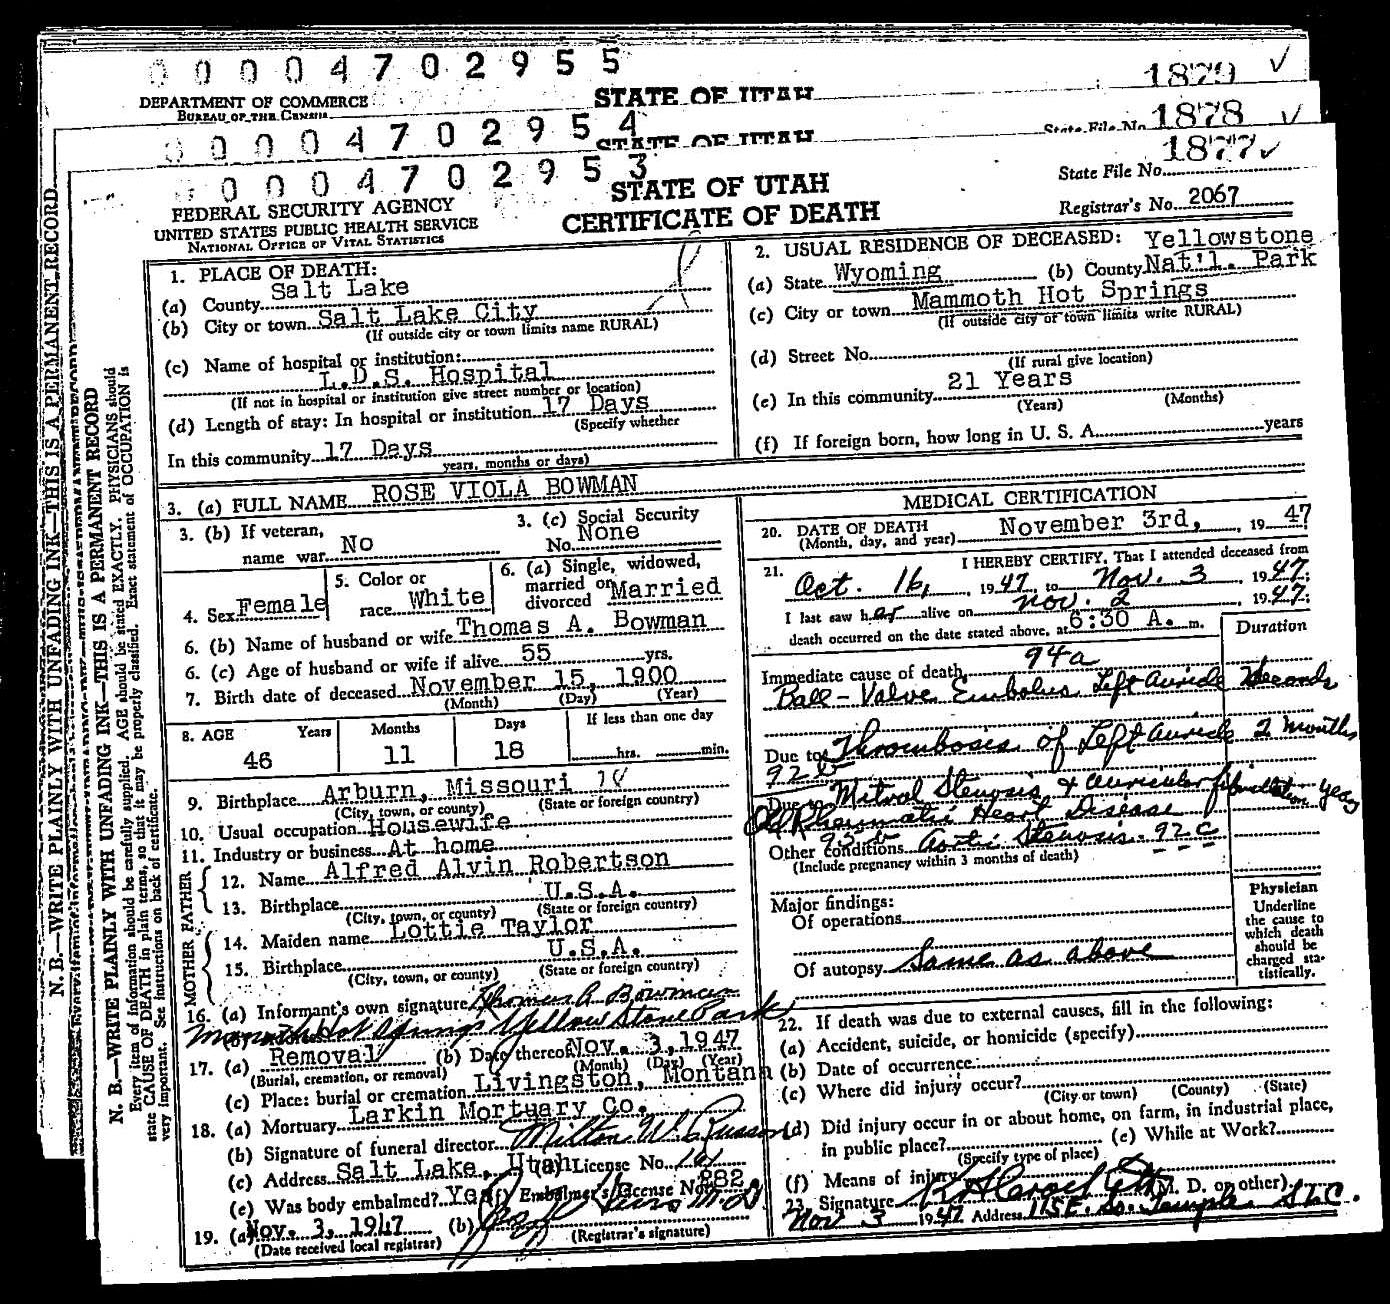 00004702955
1879 ✓
DEPARTMENT OF COMMERCE
BUREAU OF THE CENSUS
STATE OF UTAH
00004702954
STATE OF UTAH
State File No. 1878 ✓
00004702953
STATE OF UTAH
CERTIFICATE OF DEATH
State File No. 1877 ✓
Registrar's No. 2067
FEDERAL SECURITY AGENCY
UNITED STATES PUBLIC HEALTH SERVICE
NATIONAL OFFICE OF VITAL STATISTICS
N. B.—WRITE PLAINLY WITH UNFADING INK—THIS IS A PERMANENT RECORD
N. B.—WRITE PLAINLY WITH UNFADING INK—THIS IS A PERMANENT RECORD
Every item of information should be carefully supplied. AGE should be stated EXACTLY. PHYSICIANS should
state CAUSE OF DEATH in plain terms, so that it may be properly classified. Exact statement of OCCUPATION is
very important. See instructions on back of certificate.
1. PLACE OF DEATH:
(a) County Salt Lake
(b) City or town Salt Lake City
(If outside city or town limits name RURAL)
(c) Name of hospital or institution:
L.D.S. Hospital
(If not in hospital or institution give street number or location)
(d) Length of stay: In hospital or institution 17 Days
(Specify whether
In this community 17 Days
years, months or days)
2. USUAL RESIDENCE OF DECEASED: Yellowstone
(a) State Wyoming (b) County Nat'l. Park
(c) City or town Mammoth Hot Springs
(If outside city or town limits write RURAL)
(d) Street No.
(If rural give location)
(e) In this community 21 Years
(Years) (Months)
(f) If foreign born, how long in U. S. A. years
3. (a) FULL NAME ROSE VIOLA BOWMAN
3. (b) If veteran,
name war No
3. (c) Social Security
No. None
4. Sex Female
5. Color or
race White
6. (a) Single, widowed,
married or
divorced Married
6. (b) Name of husband or wife Thomas A. Bowman
6. (c) Age of husband or wife if alive 55 yrs.
7. Birth date of deceased November 15, 1900
(Month) (Day) (Year)
8. AGE Years Months Days If less than one day
46 11 18 hrs. min.
9. Birthplace Arburn, Missouri
(City, town, or county) (State or foreign country)
10. Usual occupation Housewife
11. Industry or business At home
FATHER
12. Name Alfred Alvin Robertson
13. Birthplace U.S.A.
(City, town, or county) (State or foreign country)
MOTHER
14. Maiden name Lottie Taylor
15. Birthplace U.S.A.
(City, town, or county) (State or foreign country)
16. (a) Informant's own signature Thomas A. Bowman
Mammoth Hot Springs Yellow Stone Park
17. (a) Removal (b) Date thereof Nov. 3, 1947
(Burial, cremation, or removal) (Month) (Day) (Year)
(c) Place: burial or cremation Livingston, Montana
18. (a) Mortuary Larkin Mortuary Co.
(b) Signature of funeral director Milton W. Russon
(c) Address Salt Lake, Utah (d) License No. 101
(e) Was body embalmed? Yes (f) Embalmer's License No. 282
19. (a) Nov. 3, 1947 (b) M.D.
(Date received local registrar) (Registrar's signature)
MEDICAL CERTIFICATION
20. DATE OF DEATH
(Month, day, and year) November 3rd, 1947
21. I HEREBY CERTIFY, That I attended deceased from
Oct. 16, 1947 to Nov. 3 1947;
I last saw her alive on Nov. 2, 1947;
death occurred on the date stated above, at 6:30 A. m.
Duration
94a
Immediate cause of death
Ball-Valve Embolus Left Auricle Seconds
Due to Thrombosis of Left Auricle 2 Months
92b
Due to Mitral Stenosis & Auricular fibrillation years
Old Rheumatic Heart Disease
Other conditions Aortic Stenosis 92c
(Include pregnancy within 3 months of death)
Major findings:
Of operations
Of autopsy Same as above
Physician
Underline
the cause to
which death
should be
charged sta-
tistically.
22. If death was due to external causes, fill in the following:
(a) Accident, suicide, or homicide (specify)
(b) Date of occurrence
(c) Where did injury occur?
(City or town) (County) (State)
(d) Did injury occur in or about home, on farm, in industrial place,
in public place? (e) While at Work?
(Specify type of place)
(f) Means of injury
23. Signature (M. D. or other)
Nov 3 1947 Address 115 E. So. Temple S.L.C.